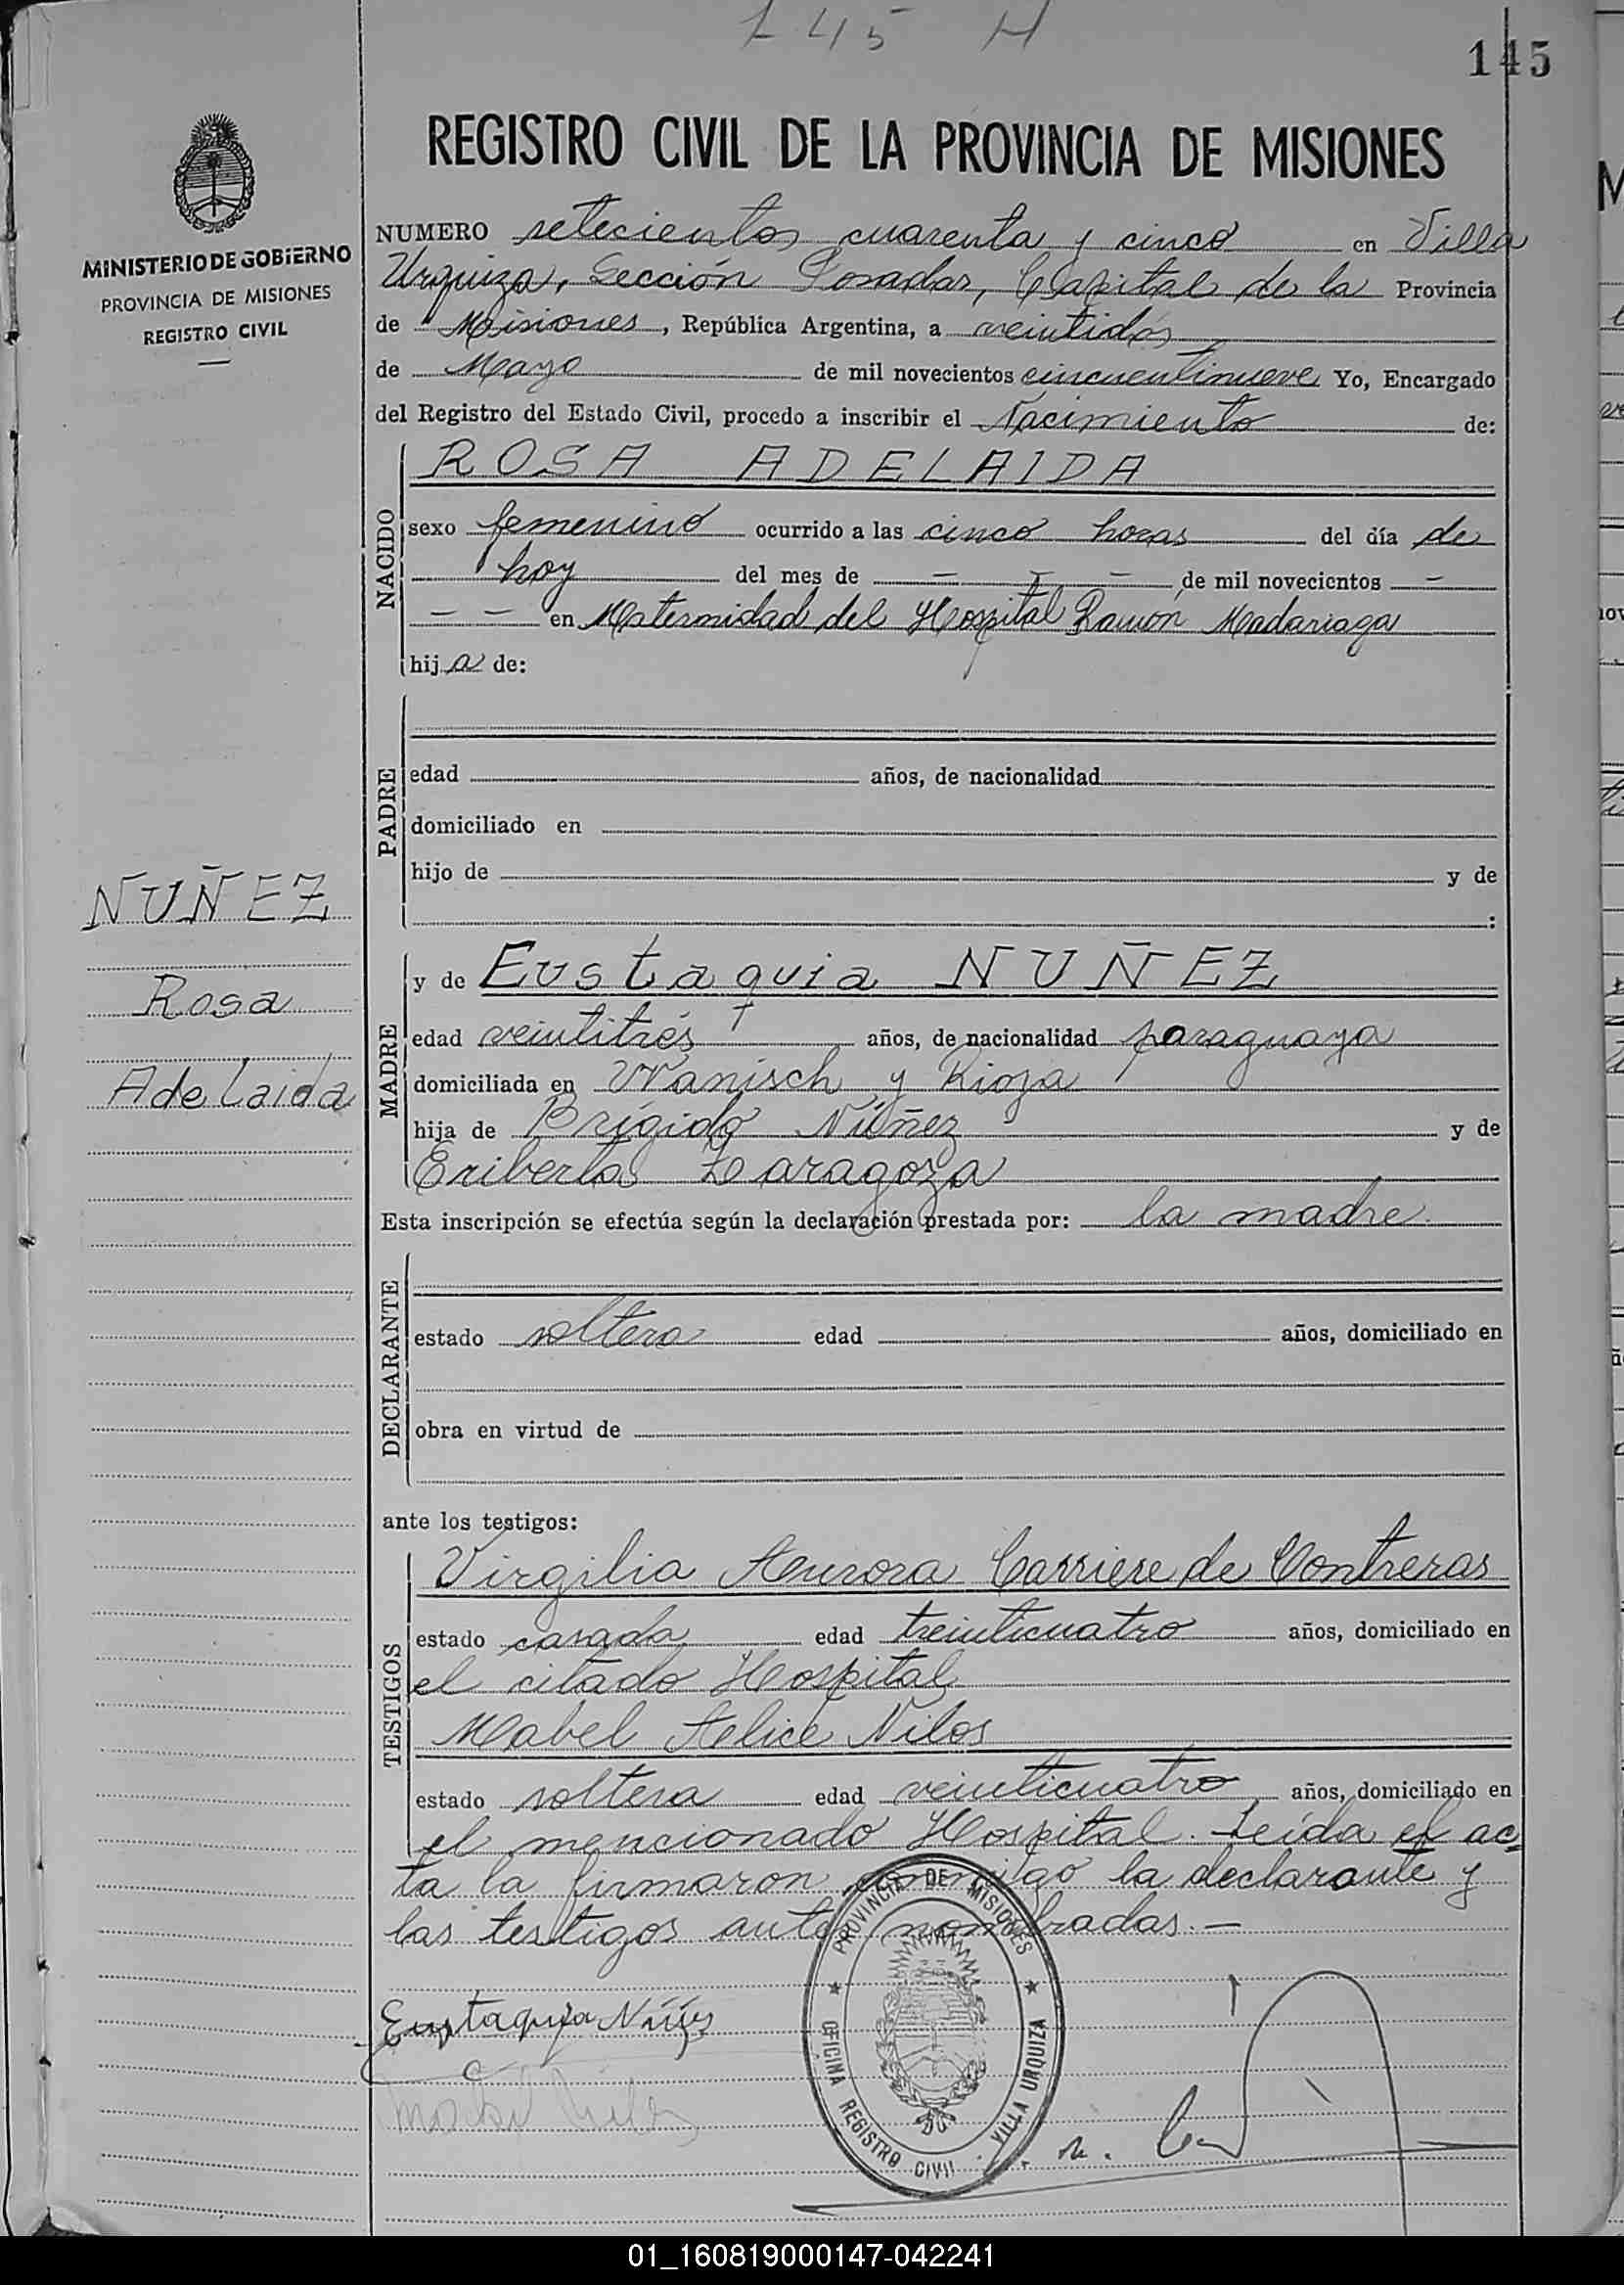 145 H
145
REGISTRO CIVIL DE LA PROVINCIA DE MISIONES
MINISTERIO DE GOBIERNO
PROVINCIA DE MISIONES
REGISTRO CIVIL
NUMERO setecientos cuarenta y cinco en Villa
Urquiza, Sección Posadas, Capital de la Provincia
de Misiones, República Argentina, a veintidós
de Mayo de mil novecientos cincuentinueve Yo, Encargado
del Registro del Estado Civil, procedo a inscribir el Nacimiento de:
NACIDO
ROSA ADELAIDA
sexo femenino ocurrido a las cinco horas del día de
hoy del mes de - - - de mil novecientos -
- - en Maternidad del Hospital Ramón Madariaga
hija de:
PADRE
edad años, de nacionalidad
domiciliado en
hijo de y de
:
NUÑEZ
Rosa
Adelaida
MADRE
y de Eustaquia NUÑEZ
edad veintitrés años, de nacionalidad paraguaya
domiciliada en Wanisch y Rioja
hija de Brígido Núñez y de
Eriberta Zaragoza
Esta inscripción se efectúa según la declaración prestada por: la madre
DECLARANTE
estado soltera edad años, domiciliado en
obra en virtud de
ante los testigos:
TESTIGOS
Virgilia Aurora Carriere de Contreras
estado casada edad treinticuatro años, domiciliado en
el citado Hospital
Mabel Alice Nilos
estado soltera edad veinticuatro años, domiciliado en
el mencionado Hospital. Leída el ac-
ta la firmaron conmigo la declarante y
las testigos ante nombradas.-
PROVINCIA DE MISIONES
OFICINA REGISTRO CIVIL VILLA URQUIZA
Eustaquia Núñez
01_160819000147-042241